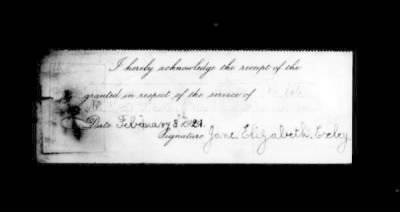 I hereby acknowledge the receipt of the
granted in respect of the service of
Date February 8th 1921.
Signature Jane. Elizabeth. Exley